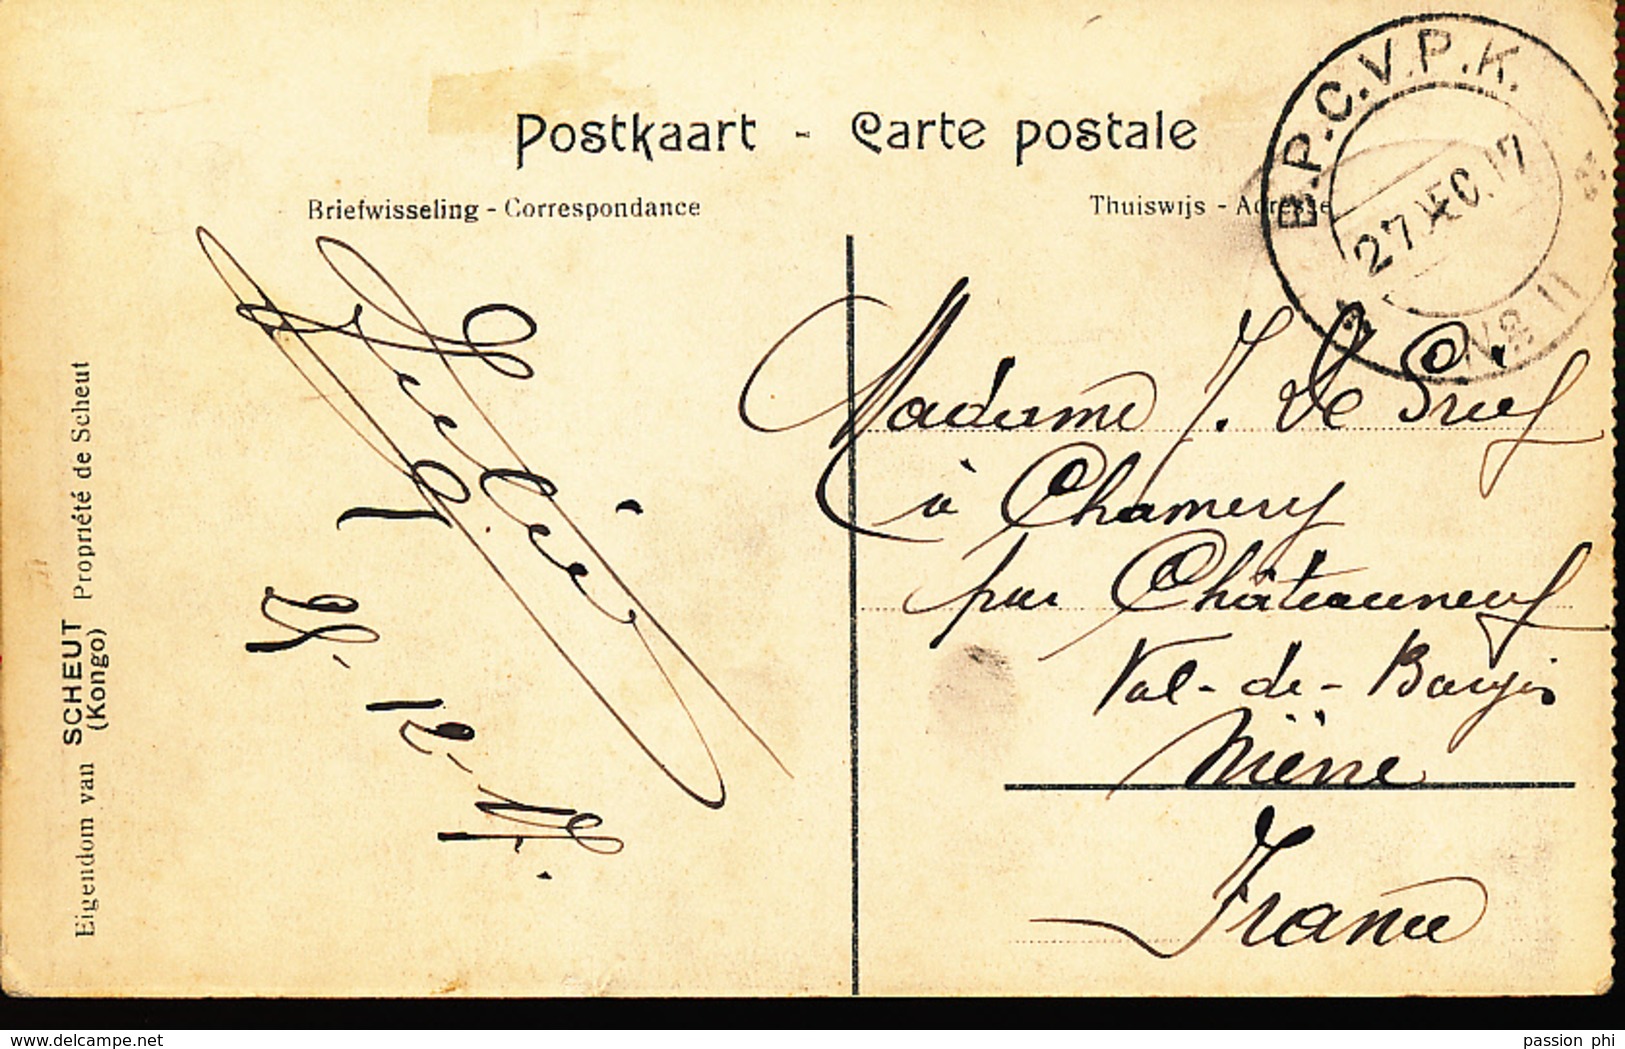 Postkaart - Carte postale
Briefwisseling - Correspondance
Thuiswijs - Adresse
B.P.C.V.P.K.
27 DEC. 17
No 11
Madame J. De
à Chamery
par Châteauneuf
Val-de-Bargis
Nièvre
France
25-12-17.
Eigendom van SCHEUT Propriété de Scheut
(Kongo)
delcampe.net
passion phi